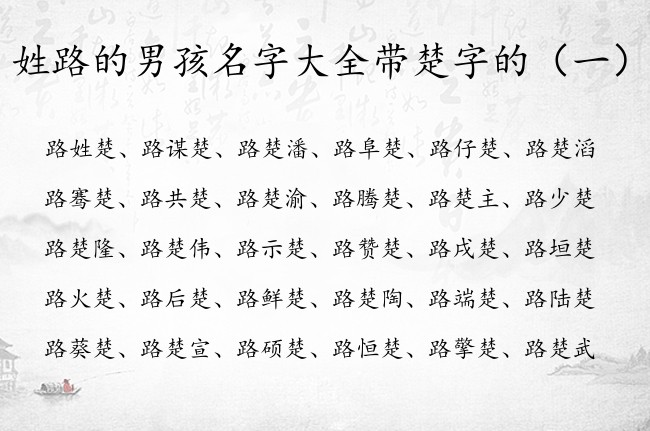 姓路的男孩名字大全带楚字的（一）
路姓楚、路谋楚、路楚潘、路阜楚、路仔楚、路楚滔
路骞楚、路共楚、路楚渝、路腾楚、路楚主、路少楚
路楚隆、路楚伟、路示楚、路赞楚、路戌楚、路垣楚
路火楚、路后楚、路鲜楚、路楚陶、路端楚、路陆楚
路葵楚、路楚宣、路硕楚、路恒楚、路擎楚、路楚武